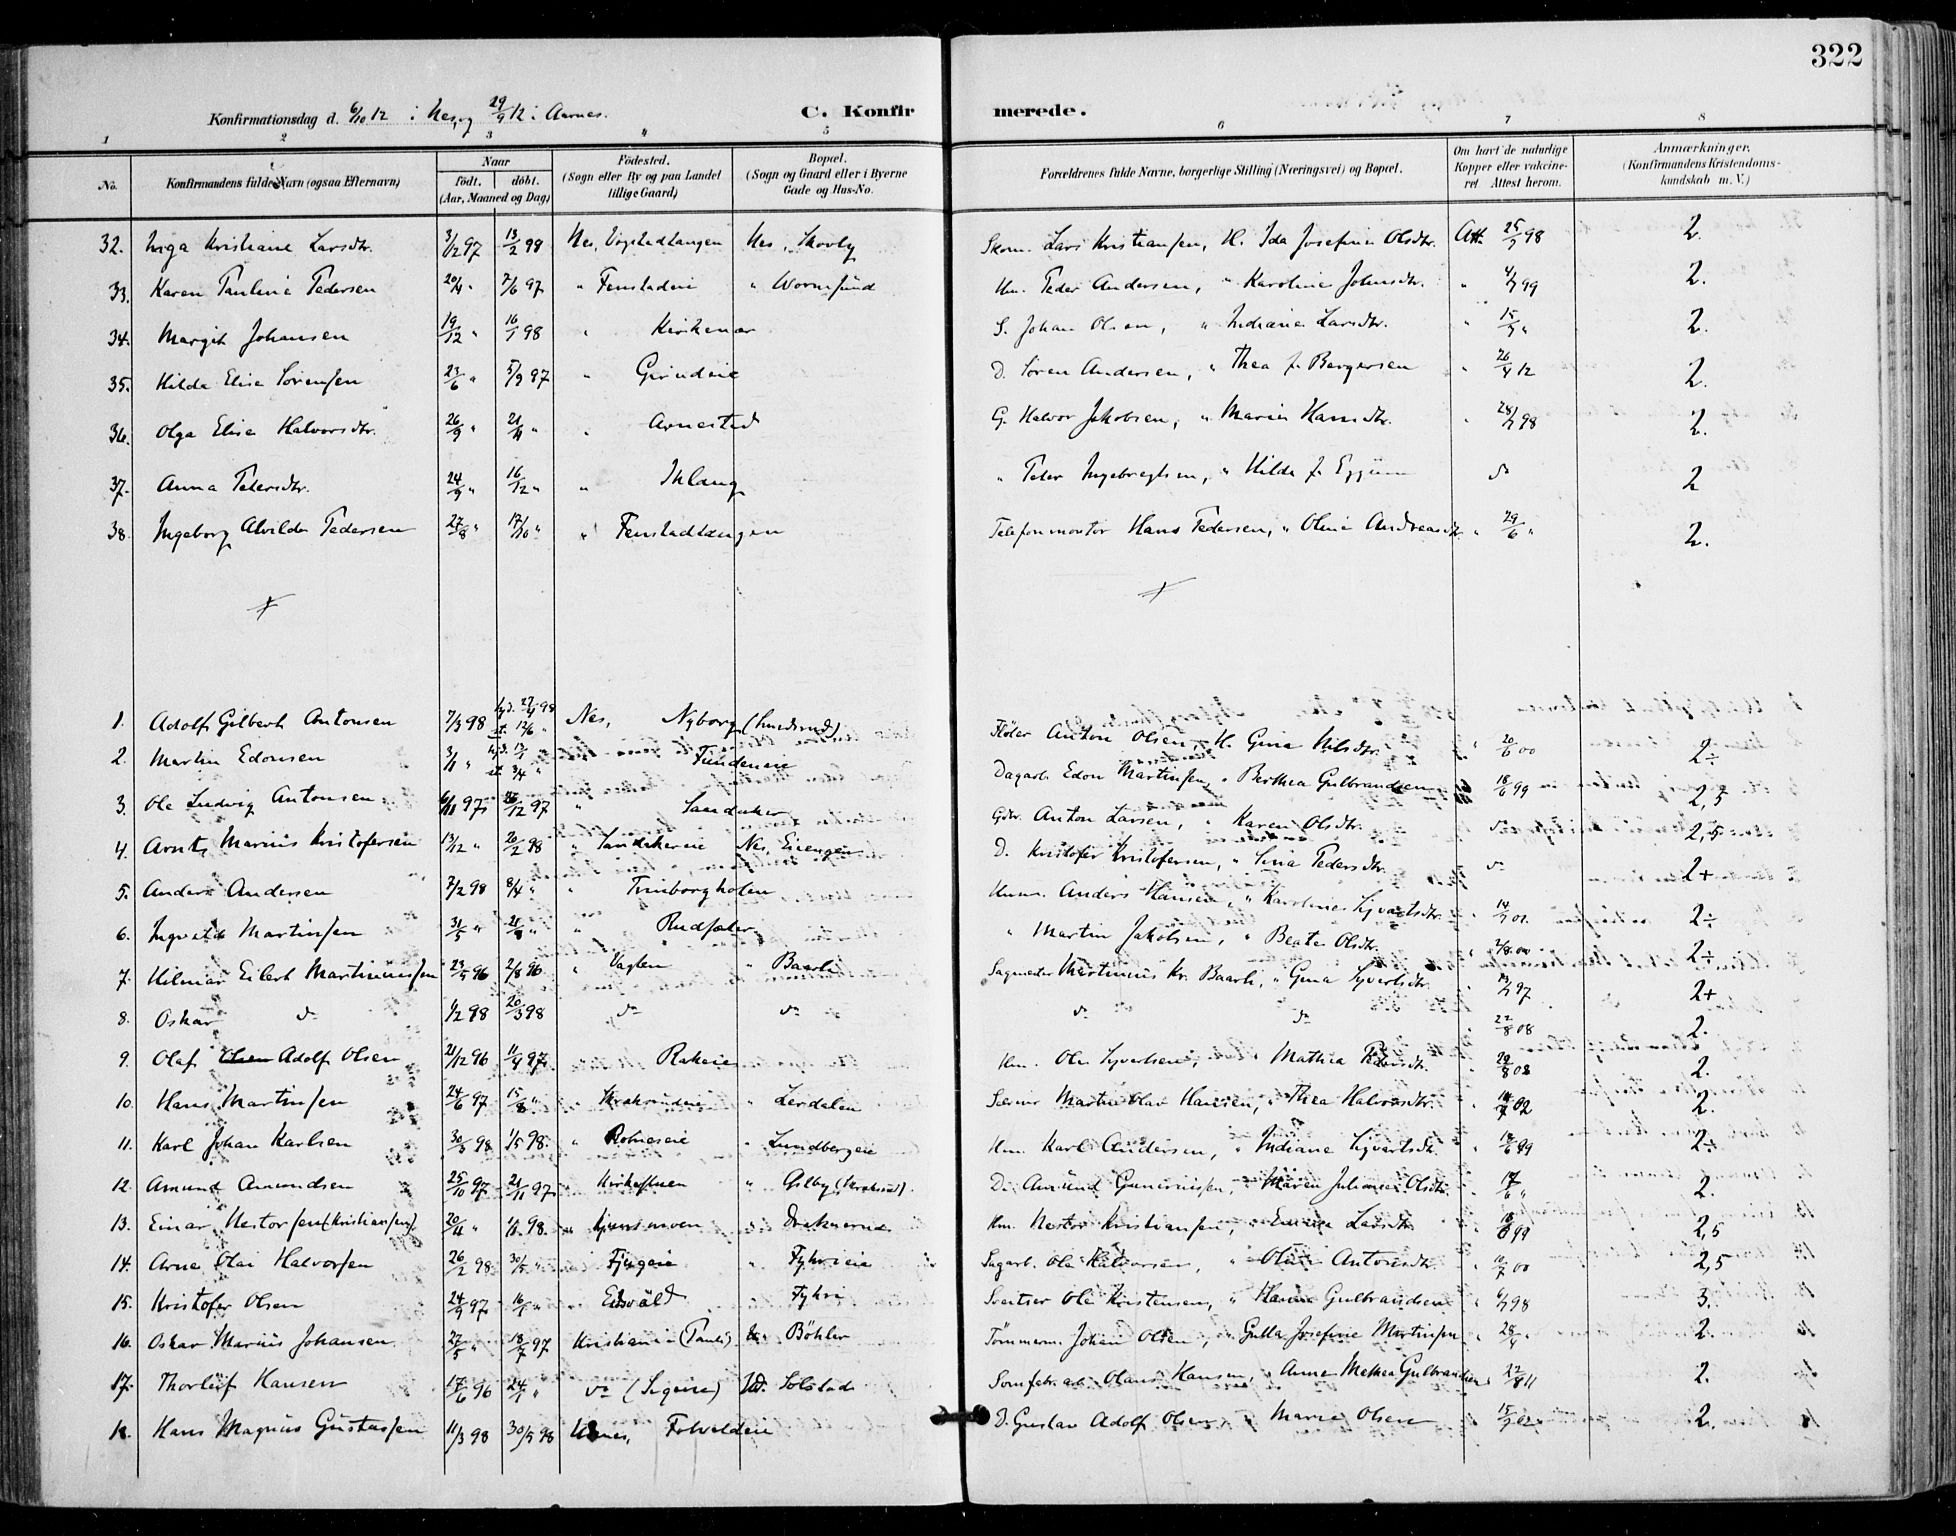 322
Konfirmationsdag d. 6/10 12 i Nes, og 29/9 12 i Aarnes. C. Konfirmerede.
1 2 3 4 5 6 7 8
No. Konfirmandens fulde Navn (ogsaa Efternavn) Naar födt. döbt. (Aar, Maaned og Dag) Födested. (Sogn eller By og paa Landet tillige Gaard) Bopæl. (Sogn og Gaard eller i Byerne Gade og Hus-No. Forældrenes fulde Navne, borgerlige Stilling (Næringsvei) og Bopæl. Om havt de naturlige Kopper eller vakcineret. Attest herom. Anmærkninger. (Konfirmandens Kristendomskundskab m. V.)
32. Inga Kristiane Larsdtr. 3/12 97 13/2 98 Nes, Vogstadtangen Nes, Skovly Skom. Lars Kristiansen, H. Ida Josefine Olsdtr. Att. 25/7 98 2.
33. Karen Pauline Pedersen 20/4 " 7/6 97 " Fenstadeie " Wormsund Hm. Peder Andersen, " Karoline Johnsdtr. " 4/7 99 2.
34. Margit Johansen 19/12 " 16/1 98 " Kirkemoe S. Johan Olsen, " Indiane Larsdtr. " 15/7 " 2.
35. Hilda Elise Sörensen 23/6 " 5/9 97 " Grindeie D. Sören Andersen, " Thea f. Bergersen " 26/4 12 2.
36. Olga Elise Halvorsdtr. 26/9 " 21/11 " " Arnestad G. Halvor Jakobsen, " Marie Hansdtr. " 28/7 98 2.
37. Anna Petersdtr. 24/9 " 16/12 " " Ihlang " Peter Ingebregtsen, " Hilda f. Eggum do 2
38. Ingeborg Alvilde Pedersen 27/8 " 17/10 " " Fenstadtangen Telefonmontör Hans Pedersen, " Oline Andreasdtr. " 29/6 " 2.
1. Adolf Gilbert Antonsen 7/3 98 hjd. 27/4 98 st. 12/6 " Nes, Nyborg (Lundsrud) Flöder Anton Olsen, H. Gina Nilsdtr. " 20/6 00 2÷
2. Martin Edonsen 3/1 " hjd. st. 3/4 " " Fundeneie Dagarb. Edon Martinsen, " Berthea Gulbrandsen " 18/6 99 2,5
3. Ole Ludvig Antonsen 6/11 97 26/12 97 " Sandaker Gdbr. Anton Larsen, " Karen Olsdtr. do 2,5
4. Arnt Marius Kristofersen 13/12 " 20/2 98 " Sandakereie Nes, Eiengen D. Kristofer Kristofersen, " Lina Pedersdtr. do 2+
5. Anders Andersen 7/2 98 8/4 " " Finborgholen Husm. Anders Hansen, " Karoline Syvertsdtr. " 14/7 01 2÷
6. Ingvald Martinsen 31/5 " 21/8 " " Rudsæter " Martin Jakobsen, " Beate Olsdtr. " 2/8 00 2÷
7. Hilmar Eilert Martiniussen 23/5 96 2/8 96 " Vaglen " Baarli Sagmester Martinius Kr. Baarli, " Gina Syvertsdtr. " 13/7 97 2+
8. Oskar do 1/2 98 20/3 98 do do do do " 22/8 08 2.
9. Olaf Olsen Adolf Olsen 21/12 96 11/4 97 Rakeie Hm. Ole Syvertsen, " Mathea Pedersdtr. " 29/8 08 2.
10. Hans Martinsen 24/6 97 15/8 " " Skrakrudeie " Lerdalen Sersnr Martin Olav Hansen, " Thea Halvorsdtr. " 14/7 02 2.
11. Karl Johan Karlsen 30/3 98 1/5 98. " Rolneseie " Lundbergeie Hm. Karl Andersen, " Indiane Sigvartsdtr. " 18/6 99 2÷
12. Amund Amundsen 25/10 97 21/11 97 " Kirkestuen " Asby (Skrakrud). D. Amund Gunerussen, " Maren Juliane Olsdtr. " 17/6 " 2.
13. Einar Nestorsen (Kristiansen) 20/11 " 1/1 98. " " Draknereie Hm. Nestor Kristiansen, " Emma Larsdtr. " 18/6 99 2,5
14. Arne Olai Halvorsen 26/2 98 30/5 " " " Fyhrieie Sagarb. Ole Halvorsen, " Oline Antonsdtr. " 10/7 00 2,5
15. Kristofer Olsen 24/9 97 16/1 " Eidsvold " Fyhri Sveitser Ole Kristensen, " Hanna Gulbrandsen " 6/7 98 3.
16. Oskar Marius Johansen 27/5 " 18/7 97 Kristiania (Pauli) Böhler Tömmerm. Johan Olsen, " Gulla Josefine Martinsen " 25/4 " 2.
17. Thorleif Hansen 17/6 96 24/9 " do Solstad Olaus Hansen, " Anne Mathea Gulbrandsen " 22/8 11 2.
18. Hans Magnus Gustavsen 11/3 98 30/5 98 Udnes, D. Gustav Adolf Olsen, " Marie Olsen " 15/7 02 2.